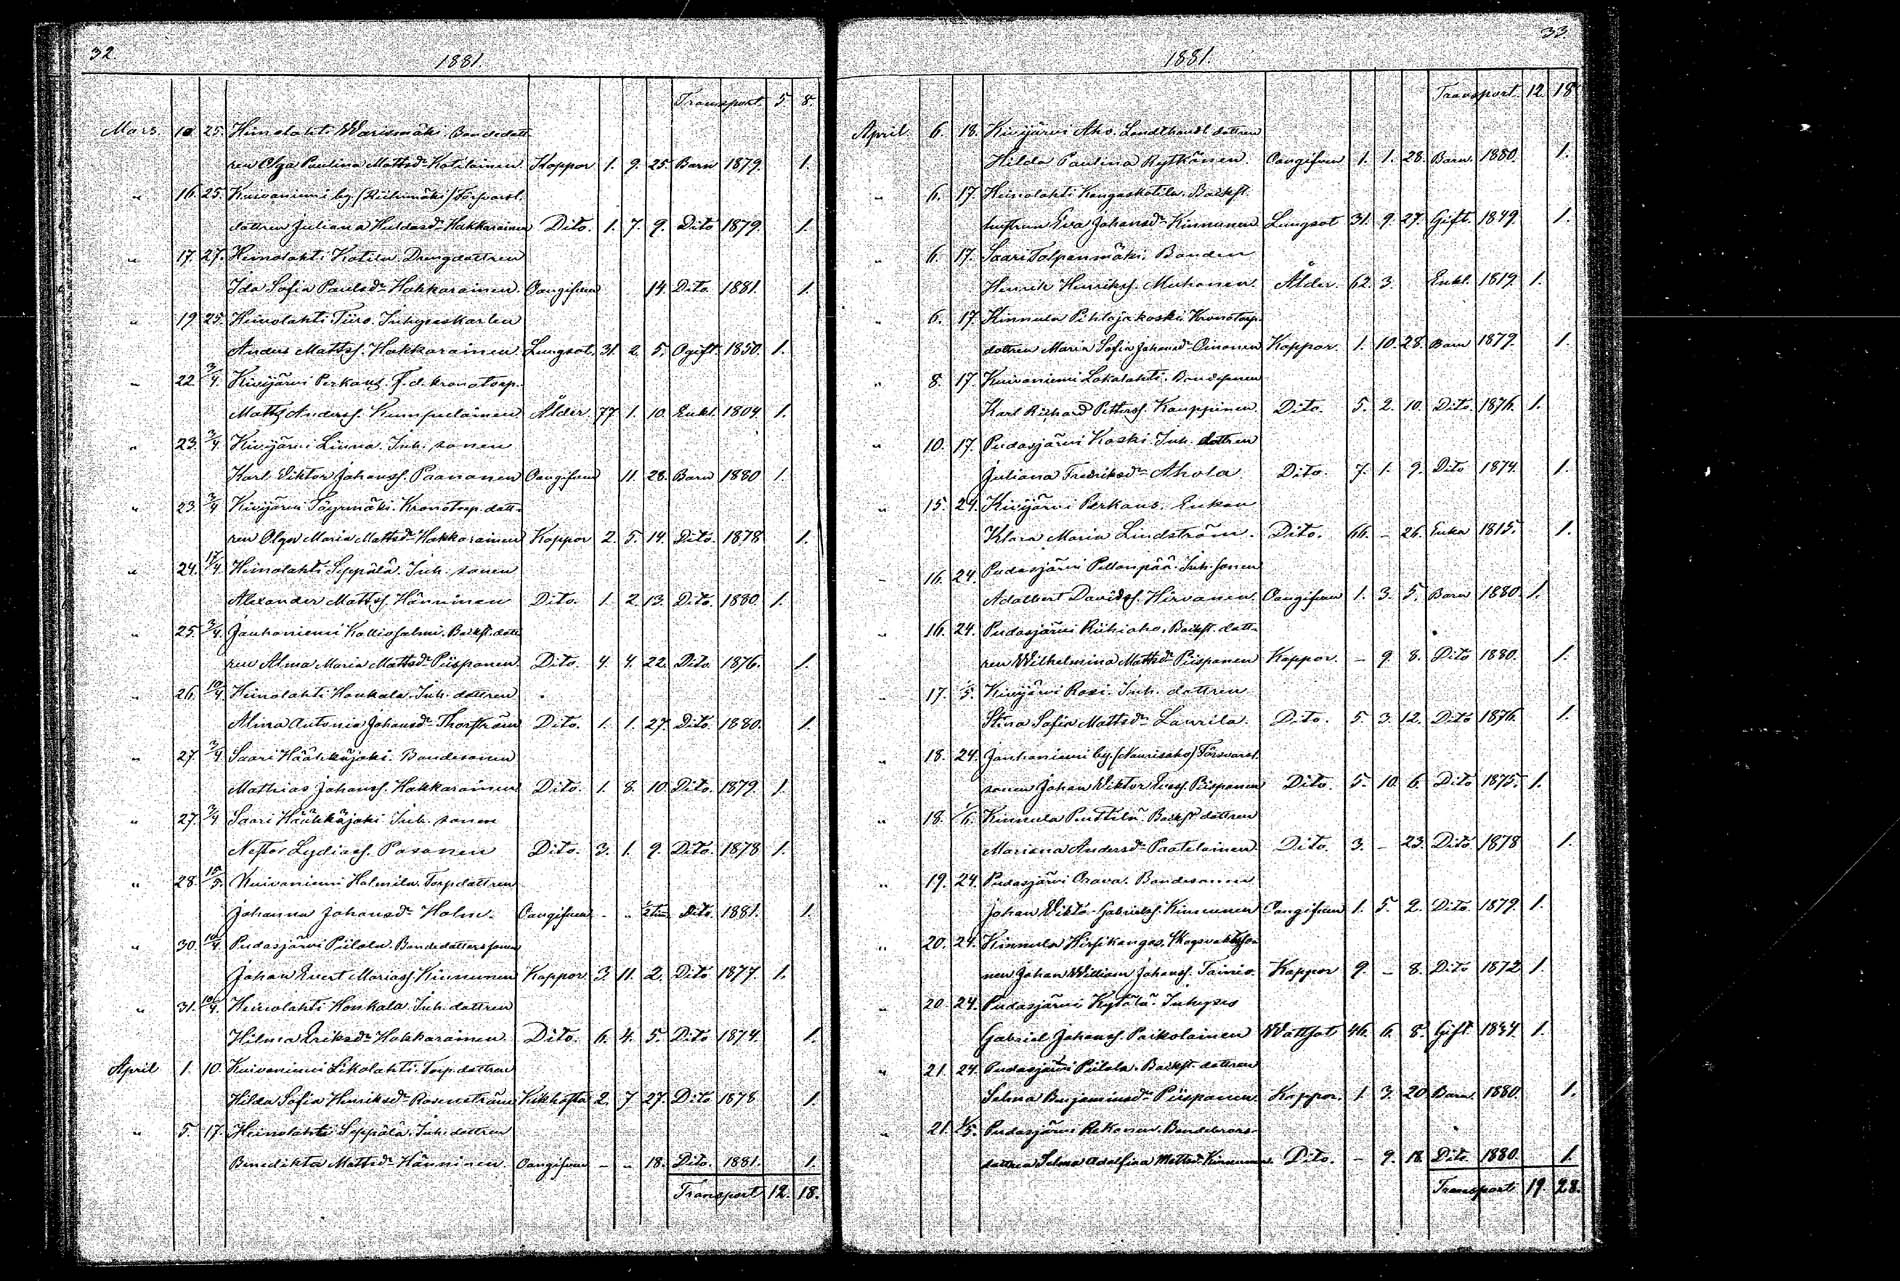 32.
1881.
Transport. 5. 8.
Mars. 10 25. Heinolahti Warismäki. Bondedott-
ren Olga Paulina Mattsdr Kotilainen. Koppor 1. 9. 25. Barn 1879. 1.
" 16. 25. Kuivaniemi by. (Riihimäki) Försvarsl.
dottren Juliana Huldasdr Hakkarainen Dito. 1. 7. 9. Dito 1879. 1.
" 17. 27. Heinolahti Kotila. Drengdottren
Ida Sofia Paulsdr Hakkarainen. Oangifven 14. Dito. 1881. 1.
" 19 25. Heinolahti Tiiro. Inhyseskarlen
Anders Mattss. Hakkarainen. Lungsot. 31. 2. 5. Ogift. 1850. 1.
" 22 3/4 Kivijärvi Perkaus. F. d. kronotorp.
Matts Anderss. Kumpulainen Ålder. 77 1. 10. Enkl. 1804 1.
" 23. 3/4 Kivijärvi Linna. Inh. sonen
Karl Viktor Johanss. Paananen Oangifven 11. 28. Barn 1880 1.
" 23. 3/4 Kivijärvi Löyrinäki. Kronotorp. dott-
ren Olga Maria Mattsdr Hakkarainen Koppor 2. 5. 14. Dito. 1878. 1.
" 24. 17/4 Heinolahti Seppälä. Inh. sonen
Alexander Mattss. Hänninen Dito. 1. 2. 13. Dito. 1880. 1.
" 25. 3/4. Jauhoniemi Kalliosalmi. Backst. dott-
ren Alma Maria Mattsdr Piispanen. Dito. 4. 4. 22. Dito. 1876. 1.
" 26. 10/4. Heinolahti Honkala. Inh. dottren
Alma Antonia Johansdr Thorström Dito. 1. 1. 27. Dito. 1880. 1.
" 27. 3/4 Saari Häähkäjoki. Bondesonen
Mathias Johanss. Hakkarainen Dito. 1. 8. 10. Dito. 1879. 1.
" 27. 3/4 Saari Häähkäjoki Inh. sonen
Nestor Lydiass. Pasanen Dito. 3. 1. 9. Dito. 1878 1.
" 28. 15/5. Kuivaniemi Halmila. Torp. dottren
Johanna Johansdr Holm. Oangifven - " Dito. 1881. 1.
" 30. 10/4. Pudasjärvi Piilola. Bondedottersonen
Johan Evert Mariass. Kinnunen Koppor. 3. 11. 2. Dito 1877. 1.
" 31. 10/4. Heinolahti Honkala. Inh. dottren
Hilma Eriksdr Hakkarainen. Dito. 6. 4. 5. Dito 1874. 1.
April 1. 10. Kuivaniemi Likolahti. Torp. dottren
Hilda Sofia Henriksdr Rosenström Kikhosta 2. 7 27. Dito 1878 1.
" 5. 17. Heinolahti Seppälä. Inh. dottren
Benedikta Mattsdr Hänninen. Oangifven - - 18. Dito. 1881. 1.
Transport 12. 18.
33.
1881.
Transport. 12. 18
April 6. 18. Kivijärvi Aho. Landthandl. dottren
Hilda Paulina Kytkänen. Oangifven 1. 1. 28. Barn. 1880. 1.
" 6. 17. Heinolahti Kangaskotila. Backst.
hustrun Eva Johansdr Kinnunen Lungsot 31. 9. 27. Gift. 1849. 1.
" 6. 17. Saari Talpanmäki. Bonden
Henrik Henrikss. Muhonen. Ålder. 62. 3. Enkl. 1819 1.
" 6. 17. Kinnula Pihlajakoski Kronotorp.
dottren Maria Sofia Johansdr Oinonen Koppor. 1. 10. 28. Barn 1879. 1.
" 8. 17. Kuivaniemi Lokolahti. Bondesonen
Karl Richard Petterss. Kauppinen. Dito. 5. 2. 10. Dito. 1876. 1.
" 10. 17. Pudasjärvi Koski. Inh. dottren
Juliana Fredriksdr Ahola. Dito. 7. 1. 9. Dito 1874. 1.
" 15. 24. Kivijärvi Perkaus. Enkan
Klara Maria Lindström. Dito. 66. - 26. Enka 1815. 1.
" 16. 24. Pudasjärvi Pellonpää. Inh. sonen
Adalbert Davidss. Hirvanen. Oangifven 1. 3. 5. Barn 1880. 1.
" 16. 24. Pudasjärvi Riihiaho. Backst. dott-
ren Wilhelmina Mattsdr Piispanen Koppor. - 9. 8. Dito 1880. 1.
" 17. 1/5. Kivijärvi Rosi. Inh. dottren
Stina Sofia Mattsdr Laurila. Dito. 5. 3. 12. Dito 1876. 1.
" 18. 24. Jauhoniemi by. (Naurisaho) Försvarsl.
sonen Johan Wiktor Evass. Piispanen Dito. 5. 10. 6. Dito 1875. 1.
" 18. Kinnula Penttilä. Backst. dottren
Mariana Andersdr Paatelainen Dito. 3. - 23. Dito 1878 1.
" 19. 24. Pudasjärvi Orava. Bondesonen
Johan Viktor Gabrielss. Kinnunen Oangifven 1. 5. 2. Dito. 1879. 1.
" 20. 24. Kinnula Hirsikangas. Skogsvaktsso-
nen Johan William Johanss. Tainio. Koppor 9. - 8. Dito 1872 1.
" 20. 24. Pudasjärvi Kytölä. Inhyses
Gabriel Johanss. Paikolainen Wattsot 46. 6. 8. Gift. 1834 1.
" 21. 24. Pudasjärvi Piilola. Backst. dottren
Selma Benjaminsdr Piispanen. Koppor. 1. 3. 20. Barn. 1880. 1.
" 21. 1/5. Pudasjärvi Rekonen. Bondebrors-
dottren Selma Adolfina Mattsdr Kinnunen. Dito. - 9. 18. Dito. 1880. 1.
Transport. 19. 28.